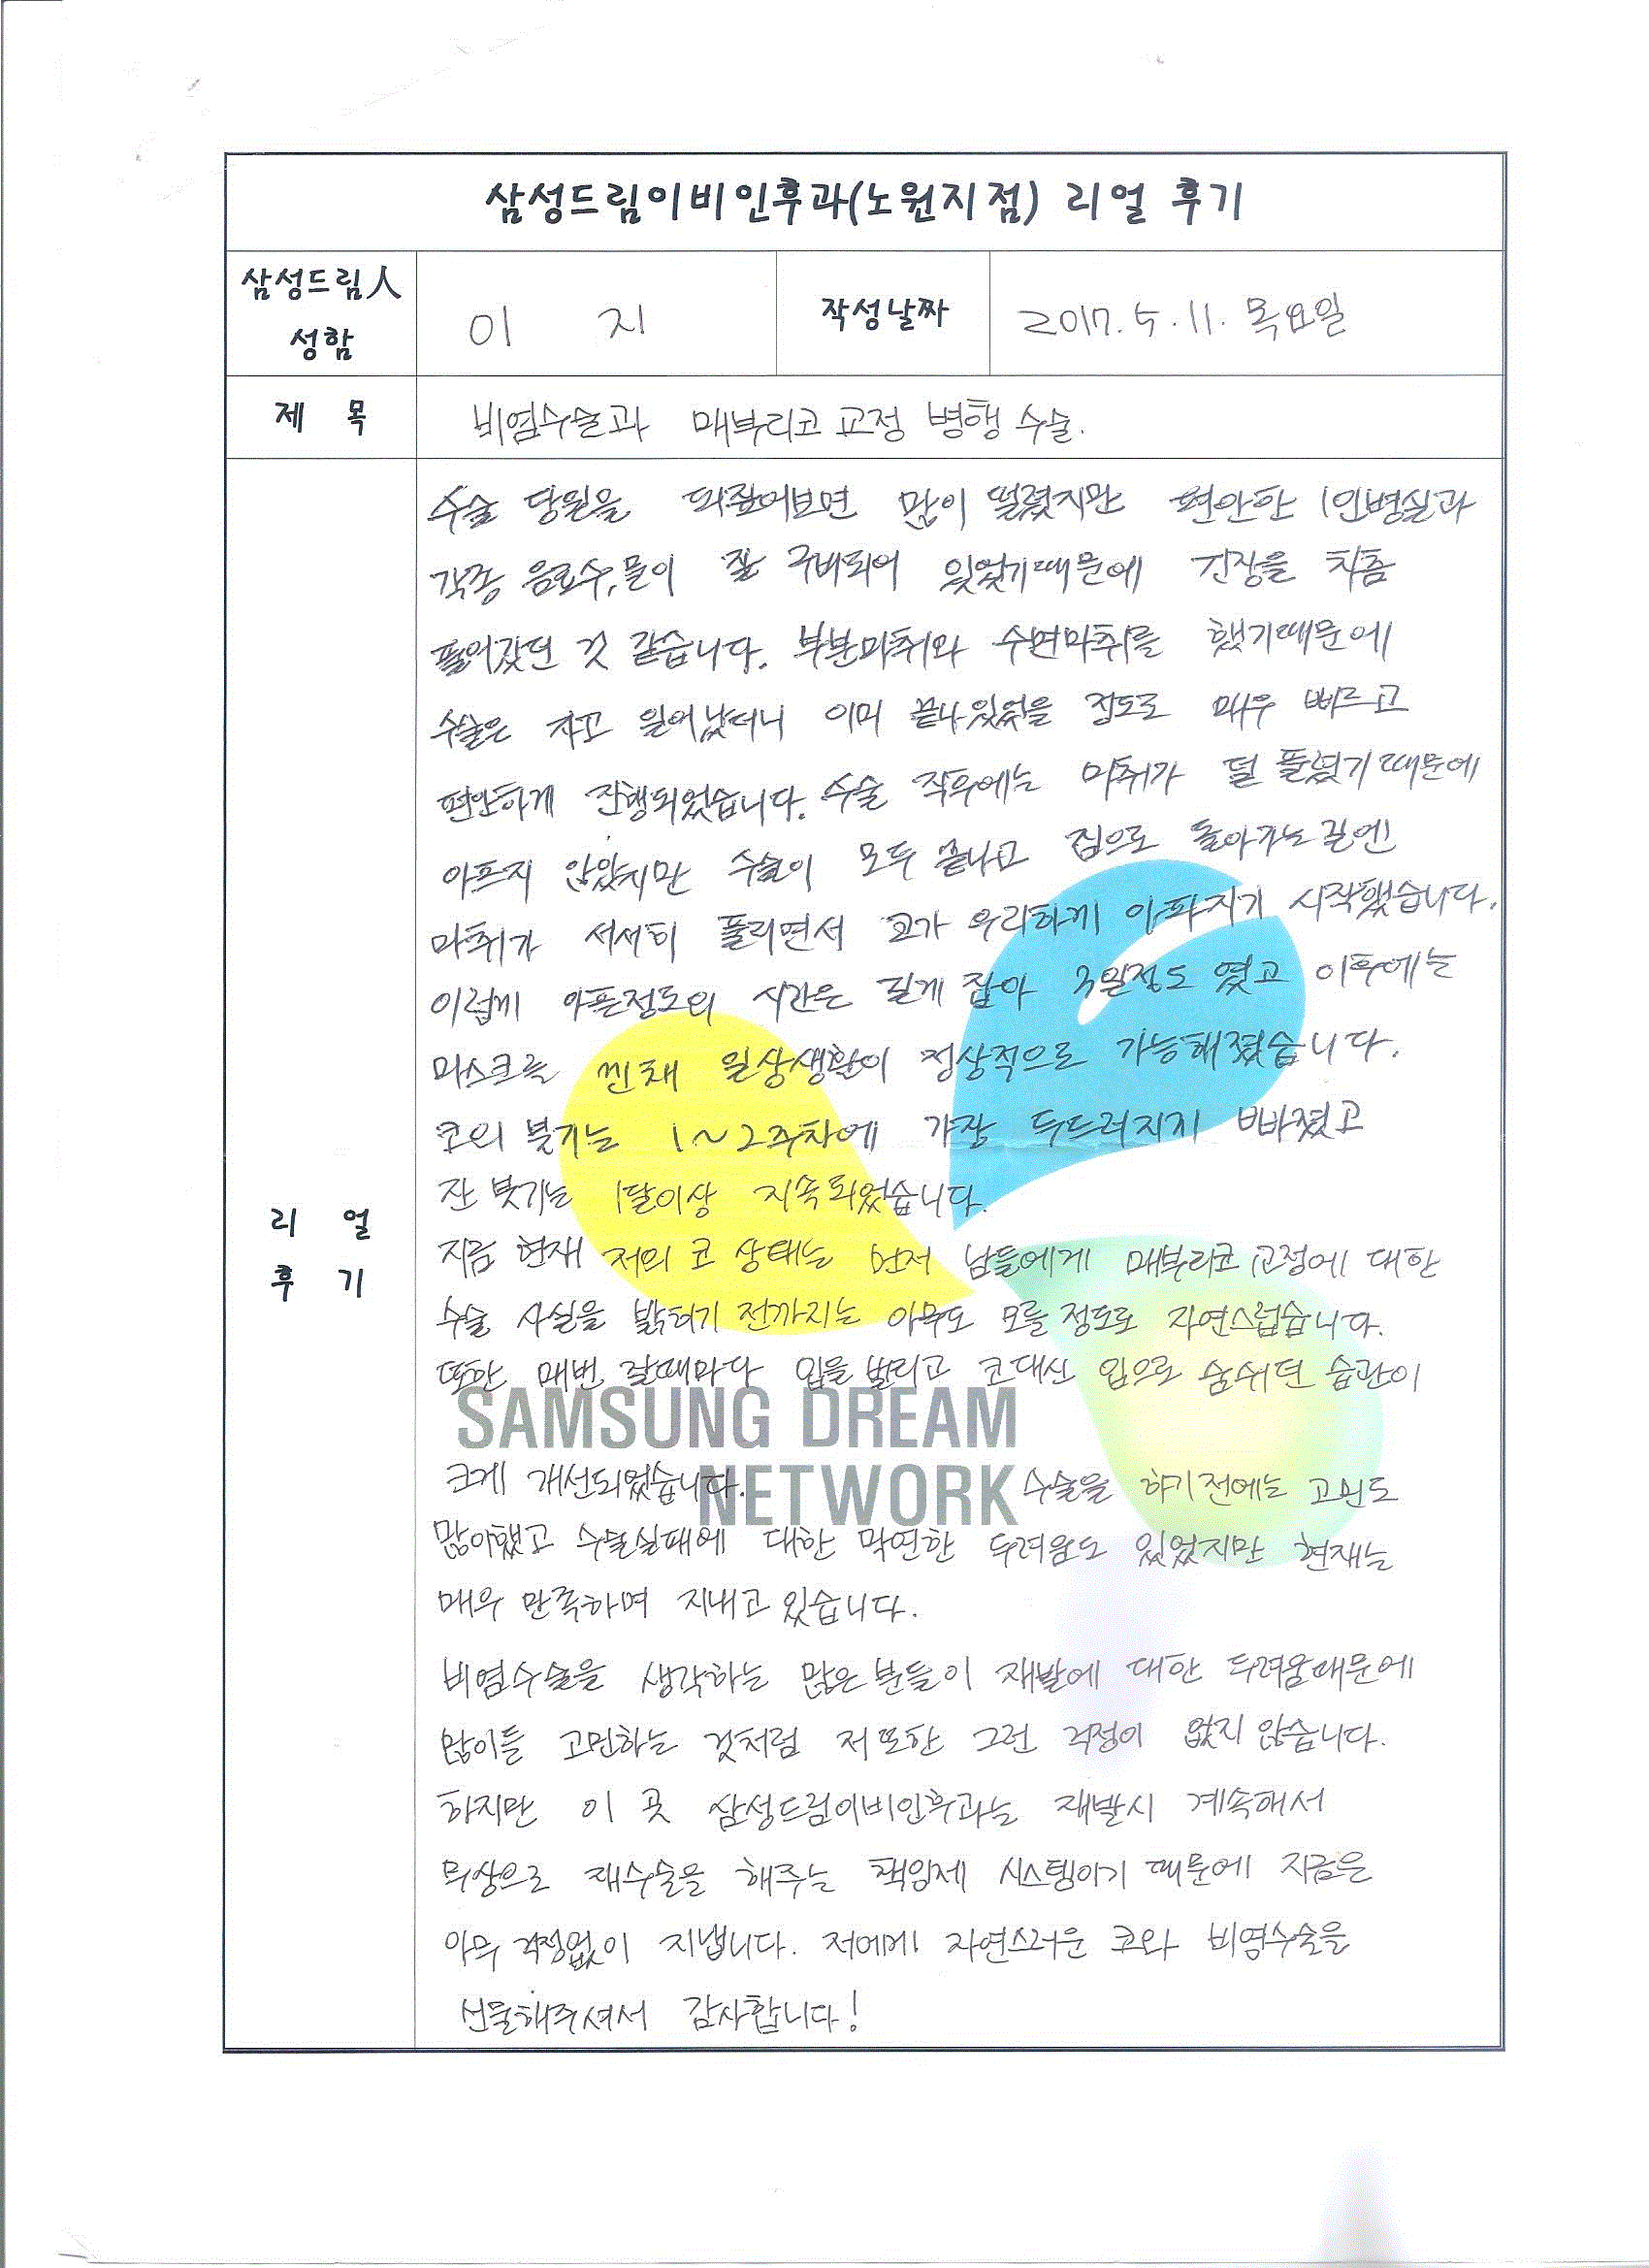 삼성드림이비인후과(노원지점) 리얼 후기
삼성드림人 성함
이 지
작성날짜
2017. 5. 11. 목요일
제 목
비염수술과 매부리코 교정 병행 수술.
리 얼 후 기
수술 당일을 되짚어보면 많이 떨렸지만 편안한 1인병실과
각종 음료수,물이 잘 구비되어 있었기때문에 긴장을 차츰
풀어갔던 것 같습니다. 부분마취와 수면마취를 했기때문에
수술은 자고 일어났더니 이미 끝나있었을 정도로 매우 빠르고
편안하게 진행되었습니다. 수술 직후에는 마취가 덜 풀렸기때문에
아프지 않았지만 수술이 모두 끝나고 집으로 돌아가는길엔
마취가 서서히 풀리면서 코가 우리하게 아파지기 시작했습니다.
이렇게 아픈정도의 시간은 길게 잡아 3일정도 였고 이후에는
마스크를 낀채 일상생활이 정상적으로 가능해졌습니다.
코의 붓기는 1~2주차에 가장 두드러지게 빠졌고
잔 붓기는 1달이상 지속되었습니다.
지금 현재 저의 코 상태는 먼저 남들에게 매부리코 교정에 대한
수술 사실을 밝히기 전까지는 아무도 모를 정도로 자연스럽습니다.
또한 매번 잘때마다 입을 벌리고 코대신 입으로 숨쉬던 습관이
SAMSUNG DREAM
크게 개선되었습니다. 수술을 하기전에는 고민도
NETWORK
많이했고 수술실패에 대한 막연한 두려움도 있었지만 현재는
매우 만족하며 지내고 있습니다.
비염수술을 생각하는 많은분들이 재발에 대한 두려움때문에
많이들 고민하는 것처럼 저 또한 그런 걱정이 없지 않습니다.
하지만 이 곳 삼성드림이비인후과는 재발시 계속해서
무상으로 재수술을 해주는 책임제 시스템이기 때문에 지금은
아무 걱정없이 지냅니다. 저에게 자연스러운 코와 비염수술을
선물해주셔서 감사합니다!